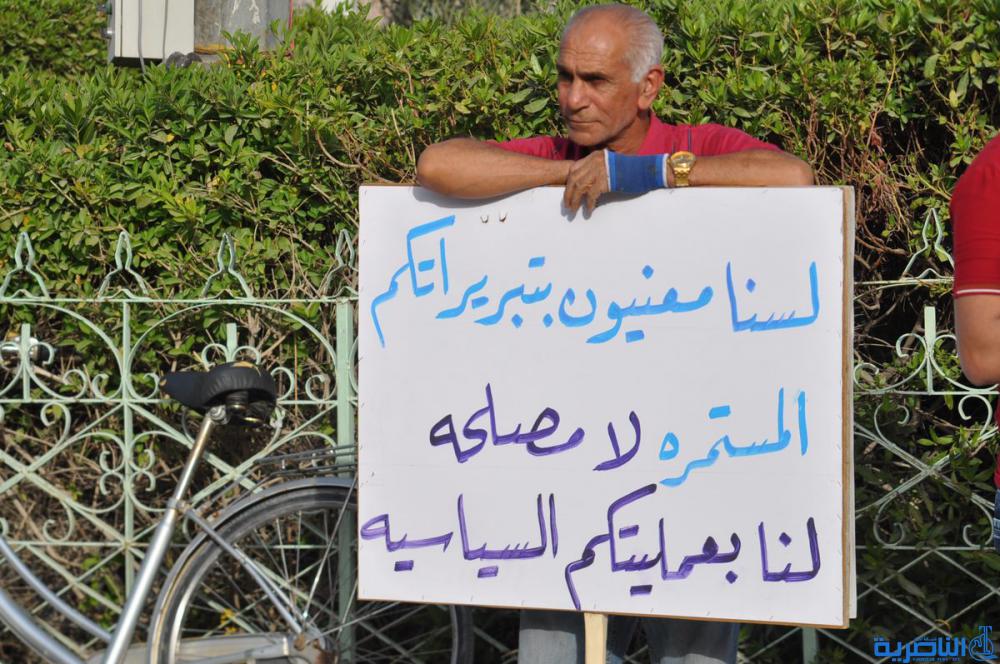 لسنا معنيون بتبريراتكم
المستمره لا مصلحه
لنا بعمليتكم السياسيه
الناصرية